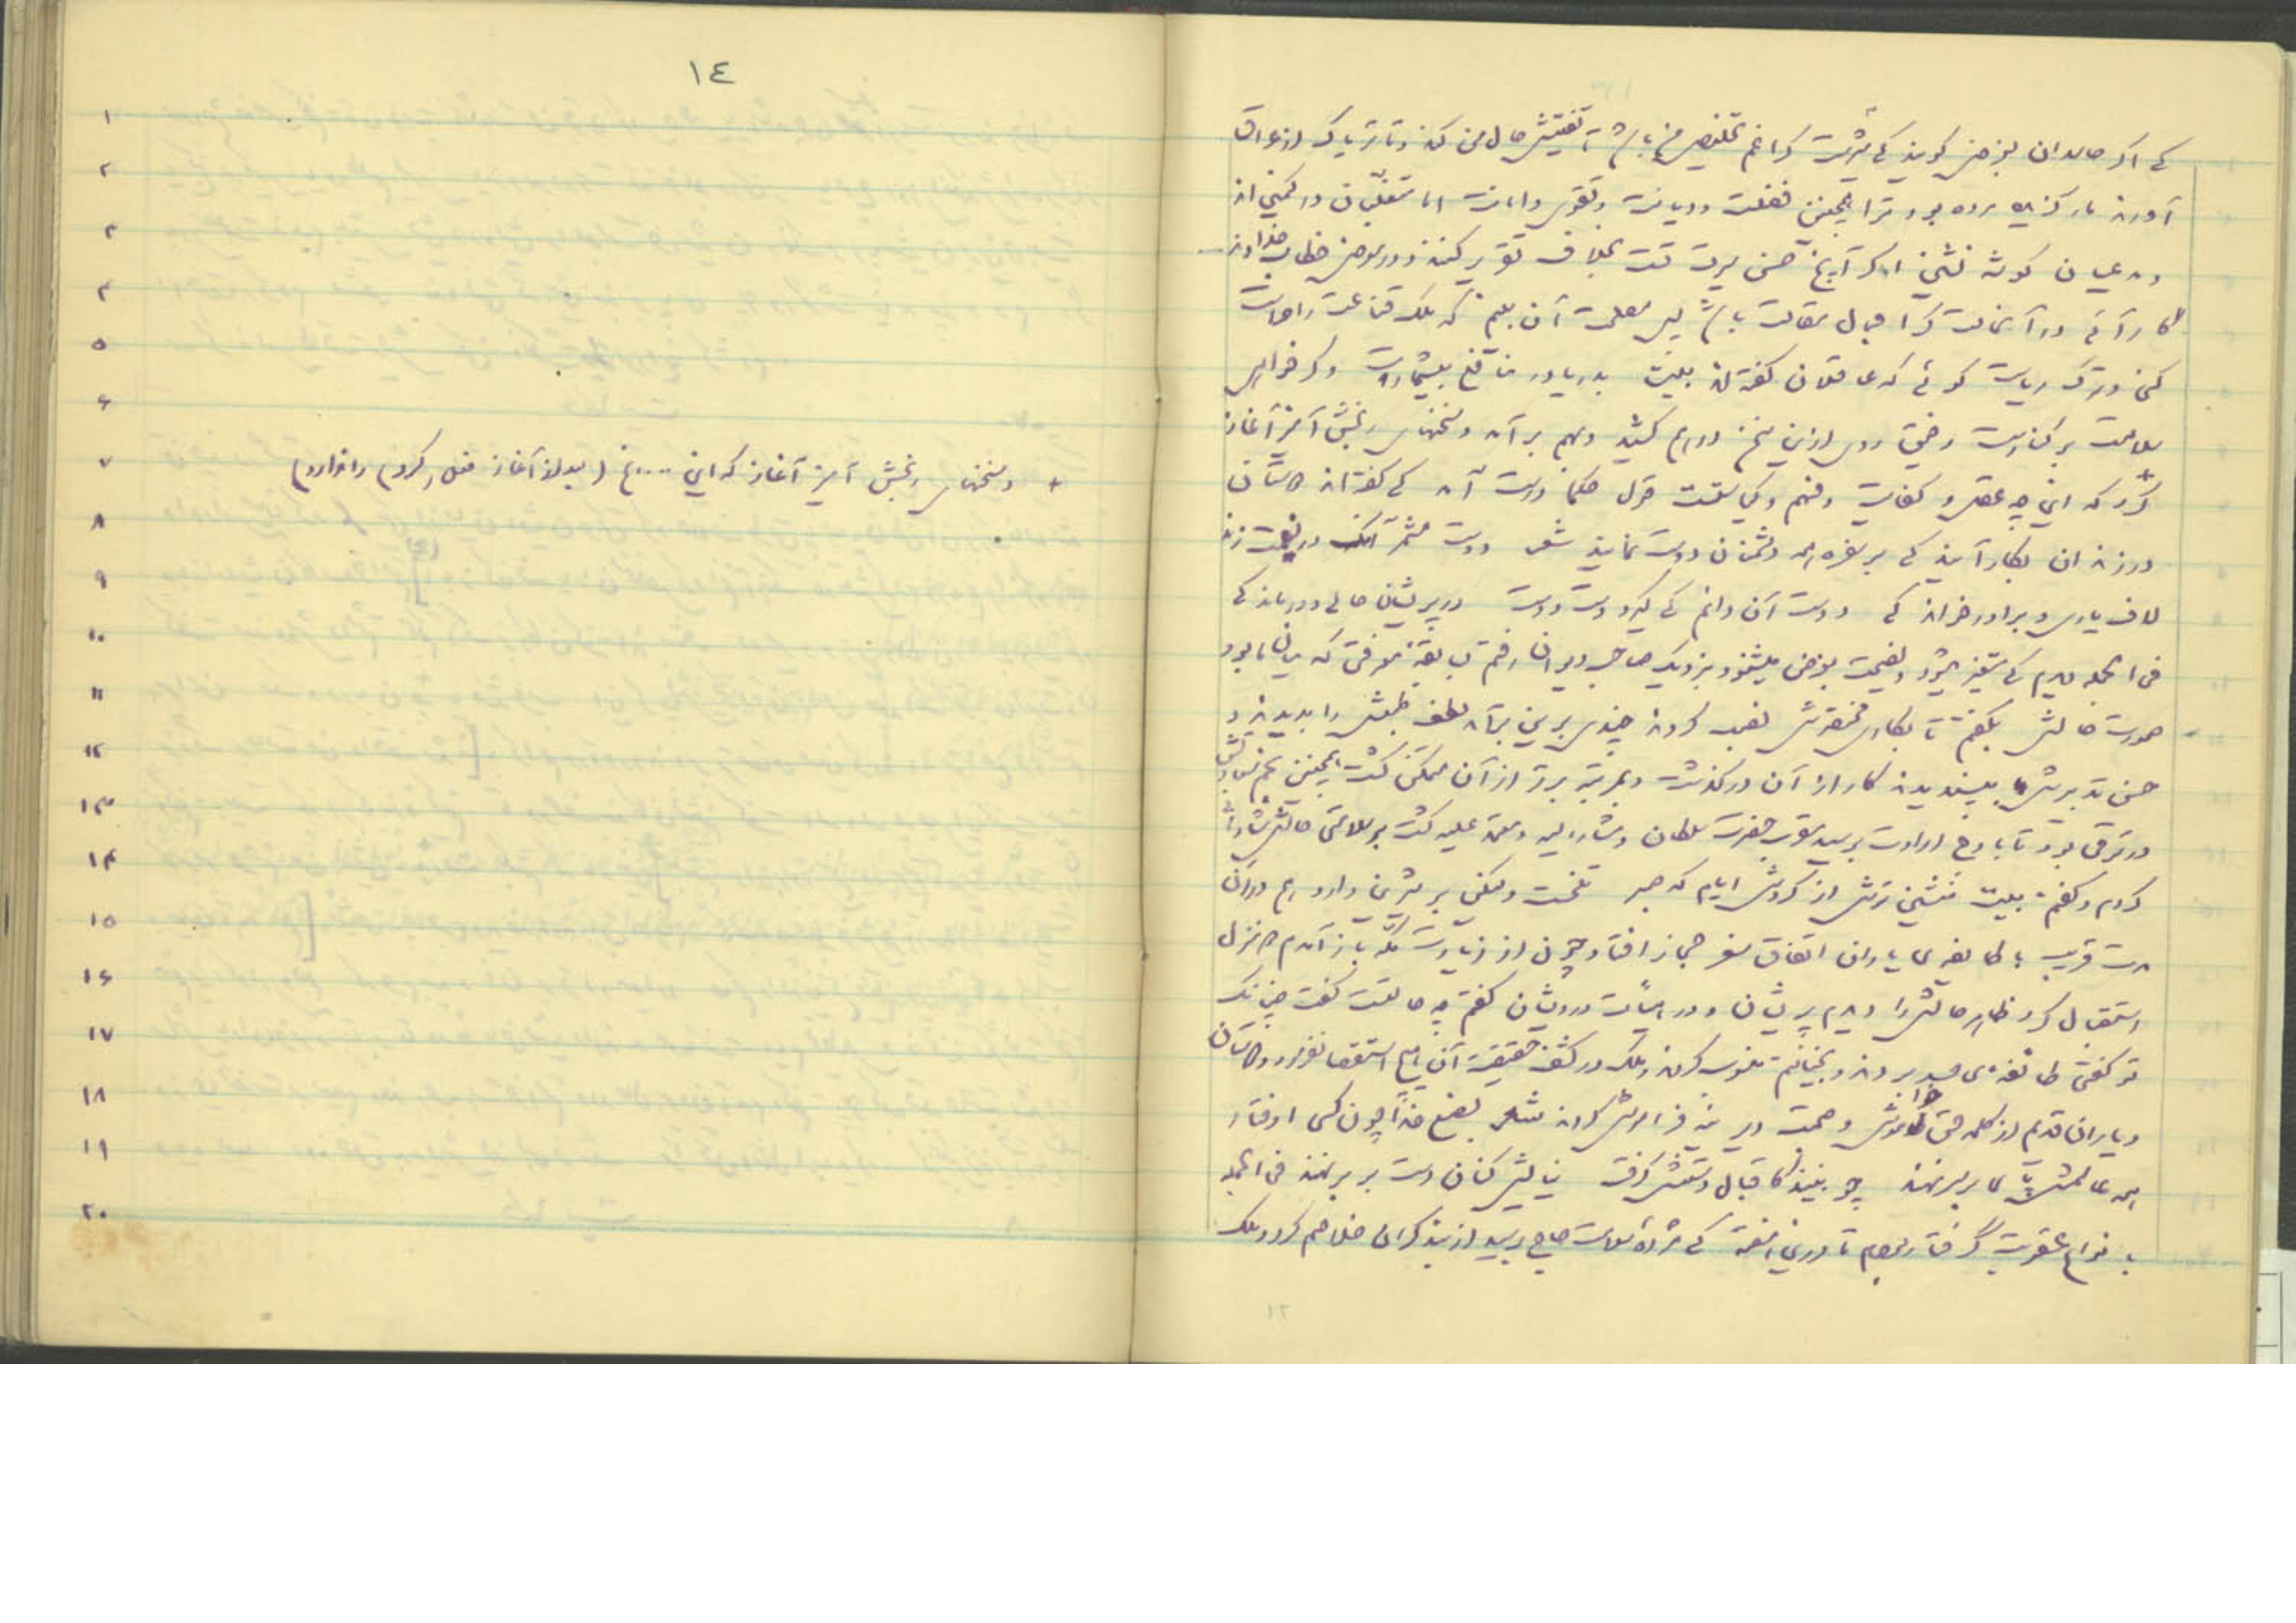 کی اگر حاسدان بغرض گویند کی شیرست کرا غم تخلیص من باشد تا تفتیش حال من کند و تا تریاک از عراق
آورند مارگزیده مرده بود ترا همچنین فضلست و دیانت و تقوی و امانت اما متعنتان در کمین اند
و مدعیان گوشه نشین اگر آنچ حسن سیرت تست بخلاف تقریر کنند و در معرض خطاب خداوند
کار آئی در آن حالت کرا مجال مقالت باشد پس مصلحت آن بینم که ملک قناعت را حراست
کنی و ترک ریاست گوئی که عاقلان گفته اند بیت بدریا در منافع بیشمارست و گر خواهی
سلامت بر کنارست رفیق روی ازین سخن درهم کشید و بهم بر آمد و سخنهای رنجش آمیز آغاز
+ کرد که این چه عقل و کفایت و فهم و کیاستست قول حکما درست آمد کی گفته اند دوستان
در زندان بکار آیند کی بر سفره همه دشمنان دوست نمایند شعر دوست مشمر آنک در نعمت زند
لاف یاری و برادر خواندگی دوست آن دانم کی گیرد دست دوست در پریشان حالی و درماندگی
فی الجمله دیدم کی متغیر میشود و نصیحت بغرض میشنود بنزدیک صاحب دیوان رفتم بسابقه معرفتی که میان ما بود
صورت حالش بگفتم تا بکاری مختصرش نصب کردند چندی برین برآمد لطف طبعش را بدیدند و
حسن تدبیرش بپسندیدند کار از آن درگذشت و بمرتبه برتر از آن متمکن گشت همچنین نجم سعادتش
در ترقی بود تا باوج ارادت برسید مقرب حضرت سلطان و مشار الیه و معتمد علیه گشت بر سلامتی حالش شادمانی
کردم و گفتم بیت منشین ترش از گردش ایام که صبر تلخست ولیکن بر شیرین دارد هم در آن
مدت قریب با طایفه ی یاران اتفاق سفر حجاز افتاد چون از زیارت مکه باز آمدم دو منزل
استقبال کرد ظاهر حالش را دیدم پریشان و در هیأت درویشان گفتم چه حالتست گفت چنانک
تو گفتی طائفه ی حسد بردند و بخیانتم منسوب کردند و ملک در کشف حقیقت آن هیچ استقصا نفرمود و دوستان
و یاران قدیم از کلمه حق خاموش و صحبت دیرینه فراموش کردند شعر بصنع خدا چون کسی اوفتاد
همه عالمش پای بر سر نهند چو بینند کاقبال دستش گرفت ستایش کنان دست بر بر نهند فی الجمله
بانواع عقوبت گرفتار بودم تا درین هفته کی مژده سلامت حاج برسید از بند گران خلاصم کرد و ملک
١٤
١
٢
٣
٤
٥
٦
٧ + و سخنهای رنجش آمیز آغاز که این .... الخ (بعد از آغاز فعل (کرد) را ندارد)
٨
٩
١٠
١١
١٢
١٣
١٤
١٥
١٦
١٧
١٨
١٩
٢٠